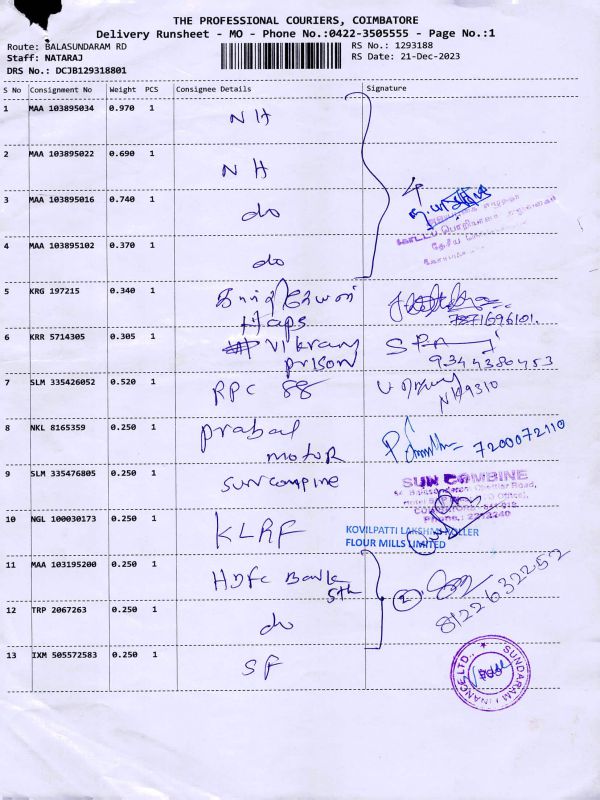 THE PROFESSIONAL COURIERS, COIMBATORE
Delivery Runsheet - MO - Phone No.:0422-3505555 - Page No.:1
Route: BALASUNDARAM RD
RS No.: 1293188
Staff: NATARAJ
RS Date: 21-Dec-2023
DRS No.: DCJB129318801
S No Consignment No Weight PCS Consignee Details Signature
1 MAA 103895034 0.970 1 NH
2 MAA 103895022 0.690 1 NH
3 MAA 103895016 0.740 1 do
4 MAA 103895102 0.370 1 do
5 KRG 197215 0.340 1
7871696101.
6 KRR 5714305 0.305 1 Vikram
prison
9344380453
7 SLM 335426052 0.520 1 RPC 88
8 NKL 8165359 0.250 1 prabal
motor
7200072110
9 SLM 335476805 0.250 1 suncompine
SUN COMBINE
10 NGL 100030173 0.250 1 KLRF
KOVILPATTI LAKSHMI ROLLER
FLOUR MILLS LIMITED
11 MAA 103195200 0.250 1 HDFC Bank
5th
2
8122632252
12 TRP 2067263 0.250 1 do
13 IXM 505572583 0.250 1 SF
SUNDARAM FINANCE LTD.,